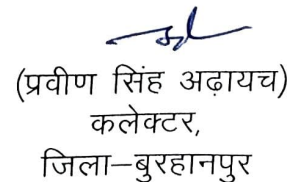 (प्रवीण सिंह अढ़ायच)
कलेक्टर,
जिला–बुरहानपुर